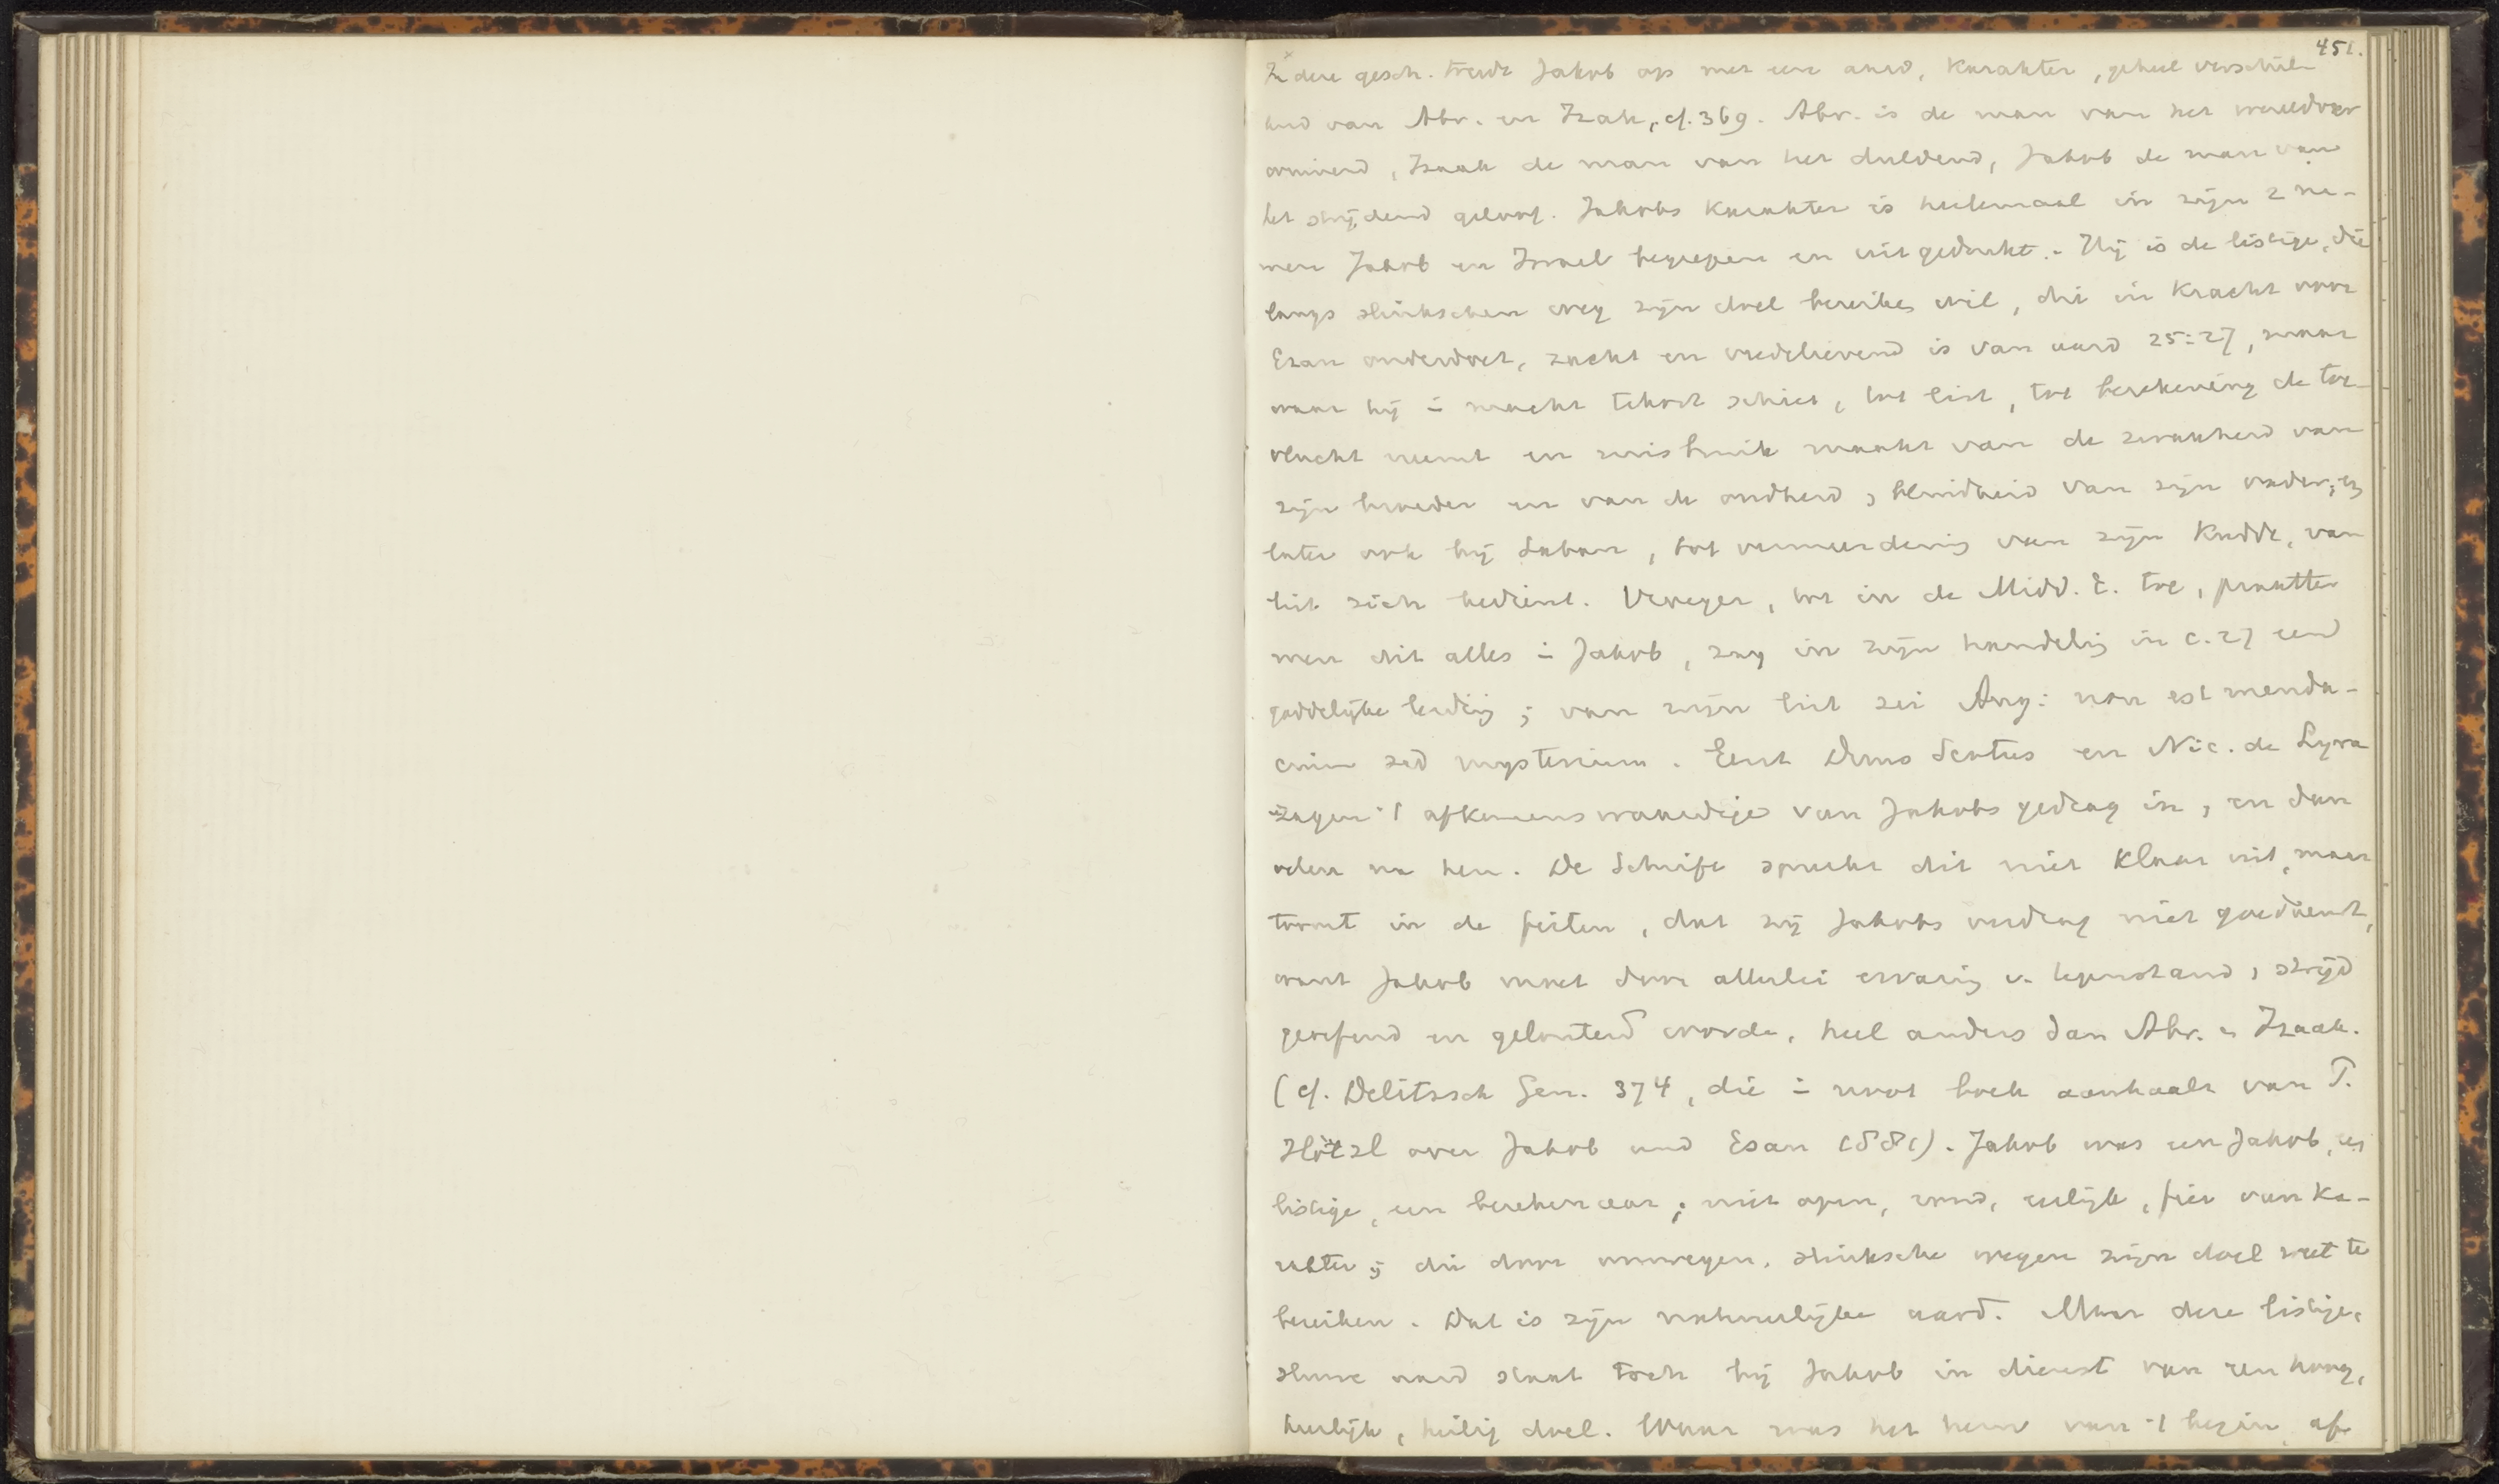 451.
In deze gesch. treedt Jakob op met een aard, karakter, geheel verschil-
lend van Abr. en Izak, cf. 369. Abr. is de man van het wereldover
winnend, Izaak de man van het duldend, Jakob de man van
het strijdend geloof. Jakobs karakter is heelemaal in zijn 2 na-
men Jakob en Israel begrepen en uitgedrukt. - Hij is de listige, die
langs slinkschen weg zijn doel bereiken wil, die in kracht voor
Ezau onderdoet, zacht en vredelievend is van aard 25:27, maar
waar hij in macht tekort schiet, tot list, tot berekening de toe-
vlucht neemt en misbruik maakt van de zwakheid van
zijn broeder en van de oudheid, blindheid van zijn vader; en
later ook bij Laban, tot vermeerdering van zijn kudde, van
list zich bedient. Vroeger, tot in de Midd. E. toe, praatte
men dit alles in Jakob, zag in zijn handeling in c. 27 eene
goddelijke leiding; van zijn list zei Aug: non est menda-
cium sed mysterium. Eerst Duns Scotus en Nic. de Lyra
zagen 't afkeurenswaardige van Jakobs gedrag in, en dan
velen na hen. De Schrift spreekt dit niet klaar uit, maar
toont in de feiten, dat zij Jakobs gedrag niet goedkeurt,
want Jakob moet door allerlei ervaring v. tegenstand, strijd
geoefend en gelouterd worden, heel anders dan Abr. en Izaak.
(cf. Delitzsch Gen. 374, die in noot boek aanhaalt van T.
Hötzl over Jakob und Esau 1881). Jakob was een Jakob, een
listige, een berekenaar; niet open, rond, eerlijk, fier van ka-
rakter; die door omwegen, slinksche wegen zijn doel weet te
bereiken. Dat is zijn natuurlijke aard. Maar deze listige,
sluwe aard staat toch bij Jakob in dienst van een hoog,
heerlijk, heilig doel. Waar was het hem van 't begin af